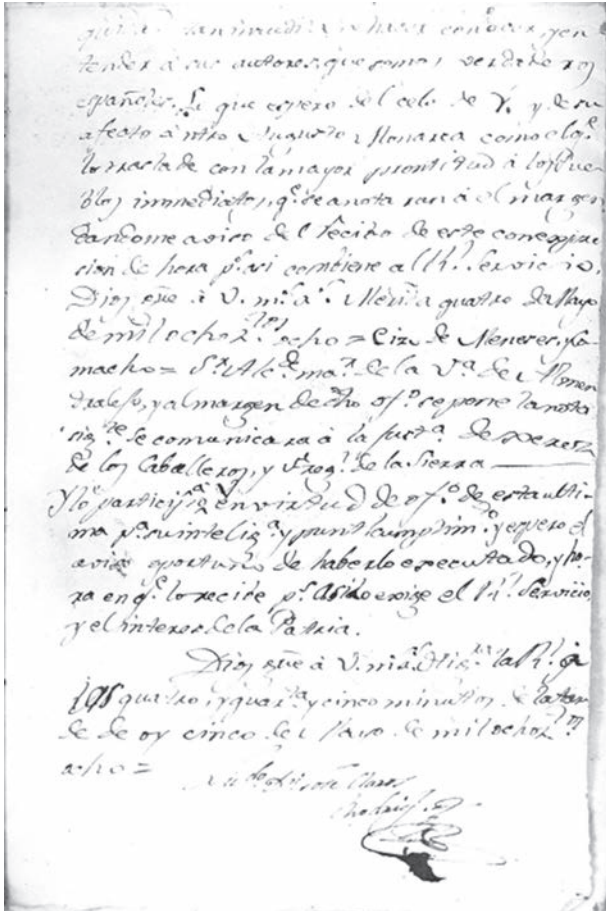 tan inaudita y hacer conocer, y en
tender á sus autores, que somos verdaderos
españoles. Lo que espero del celo de V. y de su
afecto á ntro Augusto Monarca como el qe.
lo traslade con la mayor prontitud á los Pue
blos immediatos, qe. se anotaran á el margen
dandome aviso del recibo de este con expre
sion de hora pr. asi combiene al Rl. Servicio.
Dios gue á V. ms. as. Merida quatro de Mayo
de mil ochozs. ocho = Ciz de Meneses, y Ca
macho = Sr. Alcde. mar. de la Va. de Almen
dralejo, y al margen de dho ofo. se pone la nota
sigte. se comunicara á la justa. de Xerez
de los Caballeros, y de la Sierra
en virtud de ofo. de esta ulti
ma pa. su inteliga. y puntl cumplimto. y espero el
aviso oportuno de haberlo executado, y ho-
ra en qe. lo recibe pr. asi lo exige el Rl. Servicio,
y el interes de la Patria.
Dios gue á V. ms. as.
las quatro, y quarta y cinco minutos de la tar
de de oy cinco de Mayo de mil ochozs.
ocho =
José Claros